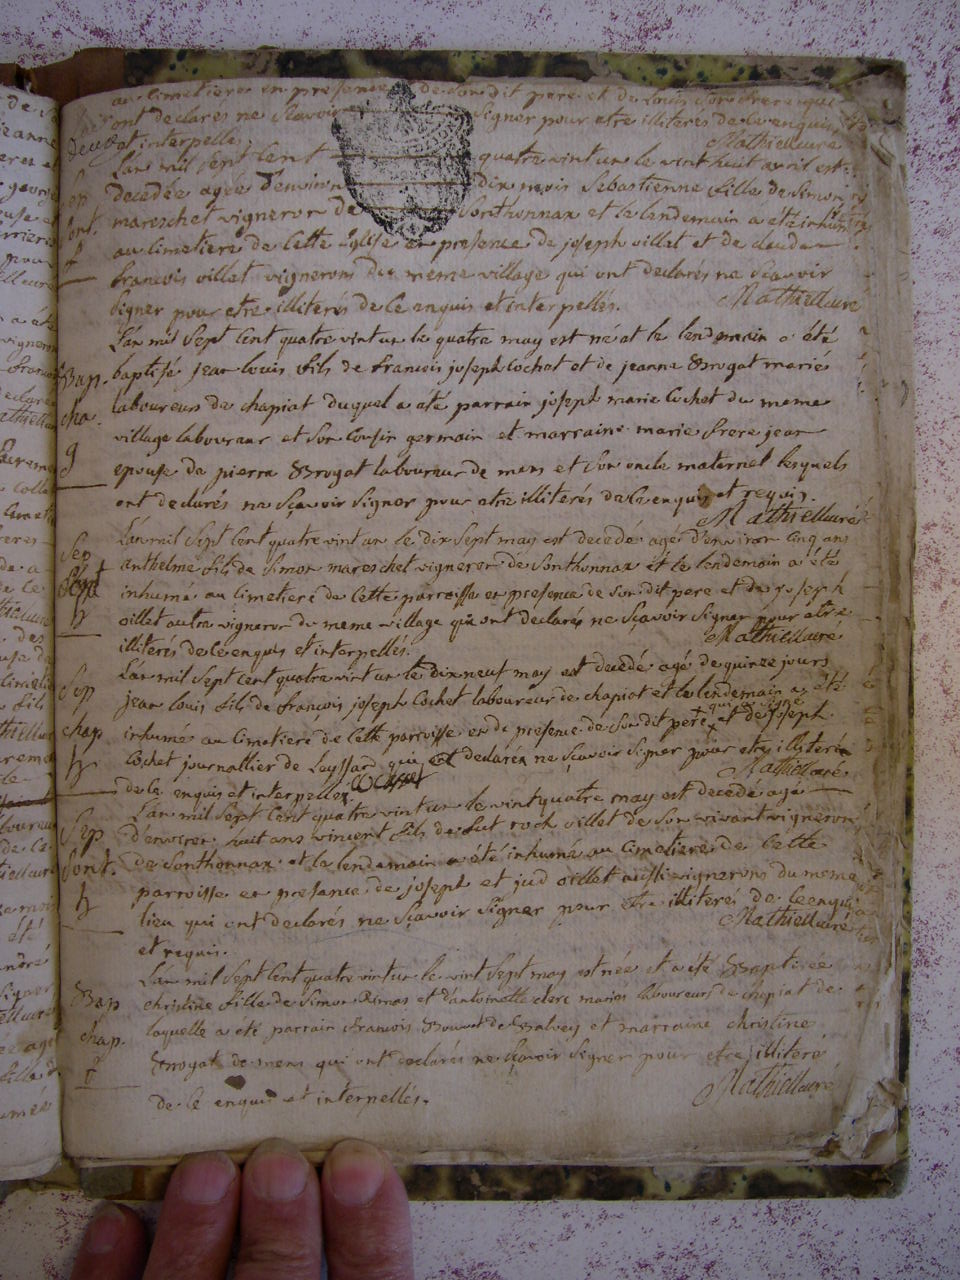 au cimetiere en presence de son dit pere et de Louis son frere qui
ont declares ne Scavoir Signer pour etre illiteres de ce enquis
et interpellés Mathieu curé
L'an mil Sept Cent quatre vint un le vint huit avril est
decedée agée d'environ dix mois Sebastienne fille de Simon
mareschet vigneron de Sonthonnax et le lendemain a eté inhumée
au cimetiere de Cette Eglise en presence de joseph villet et de claude
francois villet vignerons du méme village qui ont declarés ne Scavoir
Signer pour etre illiterés de ce enquis et interpellés. Mathieu curé
L'an mil Sept Cent quatre vint un le quatre may est né et le lendemain a été
Bap. baptisé jean Louis fils de francois joseph Cochet et de jeanne Brogat mariés
cha. laboureurs de chapiat duquel a été parrain joseph marie Cochet du meme
village laboureur et Son Cousin germain et marraine marie frere jean
g epouse de pierre Brogat laboureur de mens et Son oncle maternel lesquels
ont declarés ne Sçavoir Signer pour etre illiterés de ce enquis et requis.
Mathieu curé
Sep L'an mil Sept Cent quatre vint un le dix Sept may est decedé agé d'environ cinq ans
anthelme fils de Simon mareschet vigneron de Sonthonnax et le lendemain a été
inhumé au cimetiere de Cette parroisse en presence de Son dit pere et de joseph
oillet autre vigneron du meme village qui ont declarés ne Sçavoir Signer pour etre
illiterés de ce enquis et interpellés. Mathieu curé
Sep L'an mil Sept Cent quatre vint un le dix neuf may est decedé agé de quinze jours
jean Louis fils de françois joseph Cochet laboureur de chapiat et le lendemain a été
qui a signé
chap inhumé au Cimetiere de Cette parroisse en presence de Son dit pere et de joseph
Cochet journallier de Leyssard qui ont declarés ne Sçavoir Signer pour etre illiterés
de ce enquis et interpellés. Cochet Mathieu curé
L'an mil Sept Cent quatre vint un le vint quatre may est decedé agé
Sep. d'environ huit ans vincent fils de fut roch villet de Son vivant vigneron
Sont. de Sonthonnax et le lendemain a été inhumé au Cimetiere de Cette
parroisse en presence de joseph et jud oillet aussi vignerons du meme
lieu qui ont declarés ne Sçavoir Signer pour etre illiterés de ce enquis
et requis. Mathieu curé
L'an mil Sept Cent quatre vint un le vint Sept may est née et a été Baptisée
Bap christine fille de Simon Rimas et d'antoinette clerc mariés laboureurs de chapiat de
chap. laquelle a été parrain francois Bouvet de Balvey et marraine christine
Brogat de mens qui ont declarés ne Sçavoir Signer pour etre illiteré
f Mathieu curé
de ce enquis et interpellés.